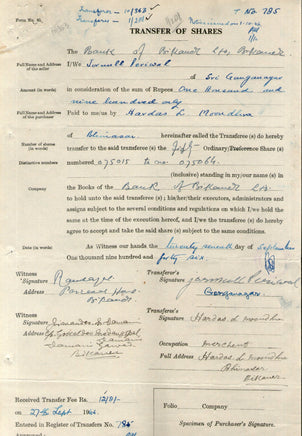 Form No. 45.
Transferor- 10/363
Transferee- 1/201
T. No 785
TRANSFER OF SHARES
The Bank of Bikaner Ltd, Bikaner
Full Name and Address of the seller
I/We
of Sri Ganganagar
Amount (in words)
in consideration of the sum of Rupees One thousand and
nine hundred only
Full Name and Address
Paid to me/us by Hardas L. Moondhra
of
Bhinasar hereinafter called the Transferee (s) do hereby
Number of shares (in words)
transfer to the said transferee (s) the fifty Ordinary/Preference Share (s)
Distinctive numbers
numbered 075015 to no 075064.
(inclusive) standing in my/our name (s) in
Company
the Books of the Bank of Bikaner Ltd
to hold unto the said transferee (s) his/her/their executors, administrators and
assigns subject to the several conditions and regulations on which I/we hold the
same at the time of the execution hereof, and I/we the transferee (s) do hereby
agree to accept and take the said share (s) subject to the same conditions.
Date (in words)
As Witness our hands the Twenty seventh day of September
One thousand nine hundred and forty six
Witness
Signature
Address
Transferor's Signature
Ganganagar
Witness
Signature
Address
Bikaner
Transferee's Signature Hardas L Moondhra
Occupation merchant
Full Address Hardas L Moondhra
Bhinasar
Bikaner
Received Transfer Fee Rs. 12/8/-
on 27th Sept
Entered in Register of Transfers No. 785
Folio
Company
Specimen of Purchaser's Signature.